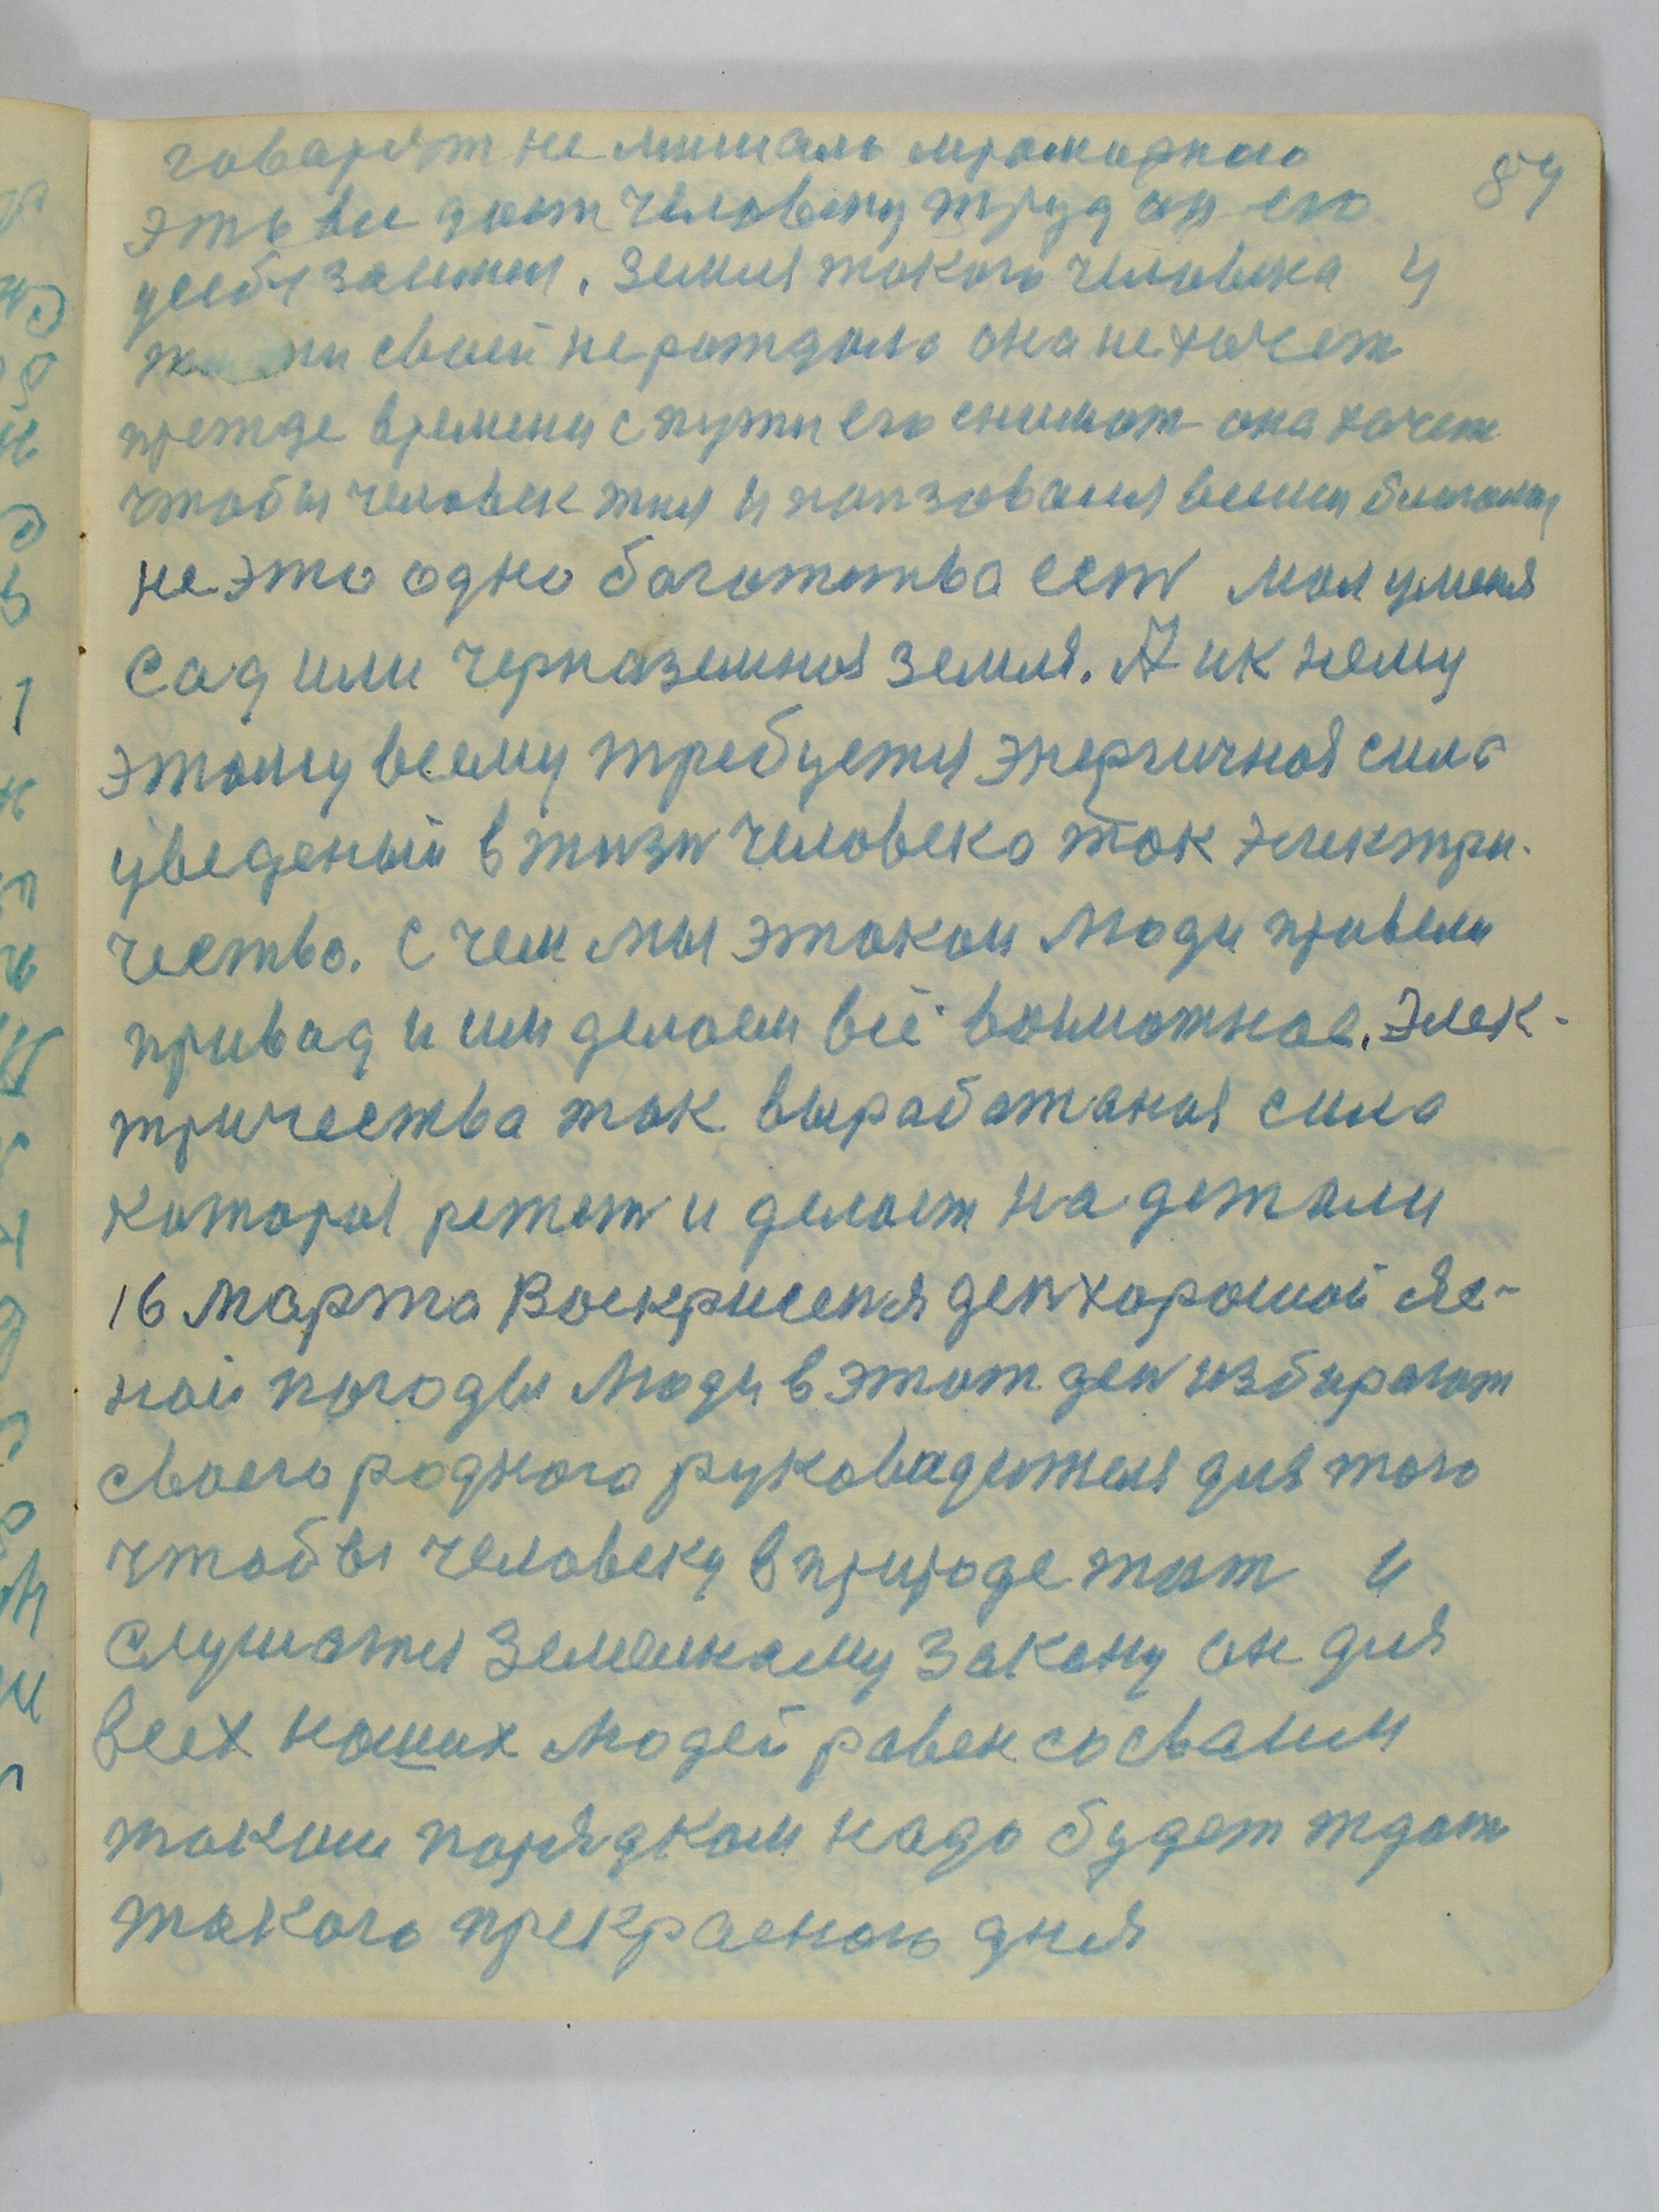 говарят не мишало
84
эта все дает человеку труд он его
усебя заимел. Земля такого человека у
жизни своей не рождала она не хочет
прежде времени с пути его снимат она хочет
чтобы человек жил и ползовался всеми благами
не это одно богатства ест мол уменя
сад или черназемная земля. А ик нему
этому всему требуетця энергичная сила
уведеный в жизн человека ток электри-
чество. С чем мы этаком люди правели
правад и им делаем всё возможное. Элек-
тричества ток выработаная сила
каторая режет и делает на детали
16 марта Воскрисеня ден хорошой яс-
ной погоды люди в этот ден избирают
своего родного руковадителя для того
чтобы человеку в природе жит и
слушатя Земельнаму Закону он для
всех наших людей равен со сваим
таким парядкам надо будет ждат
такого прекрасного дня